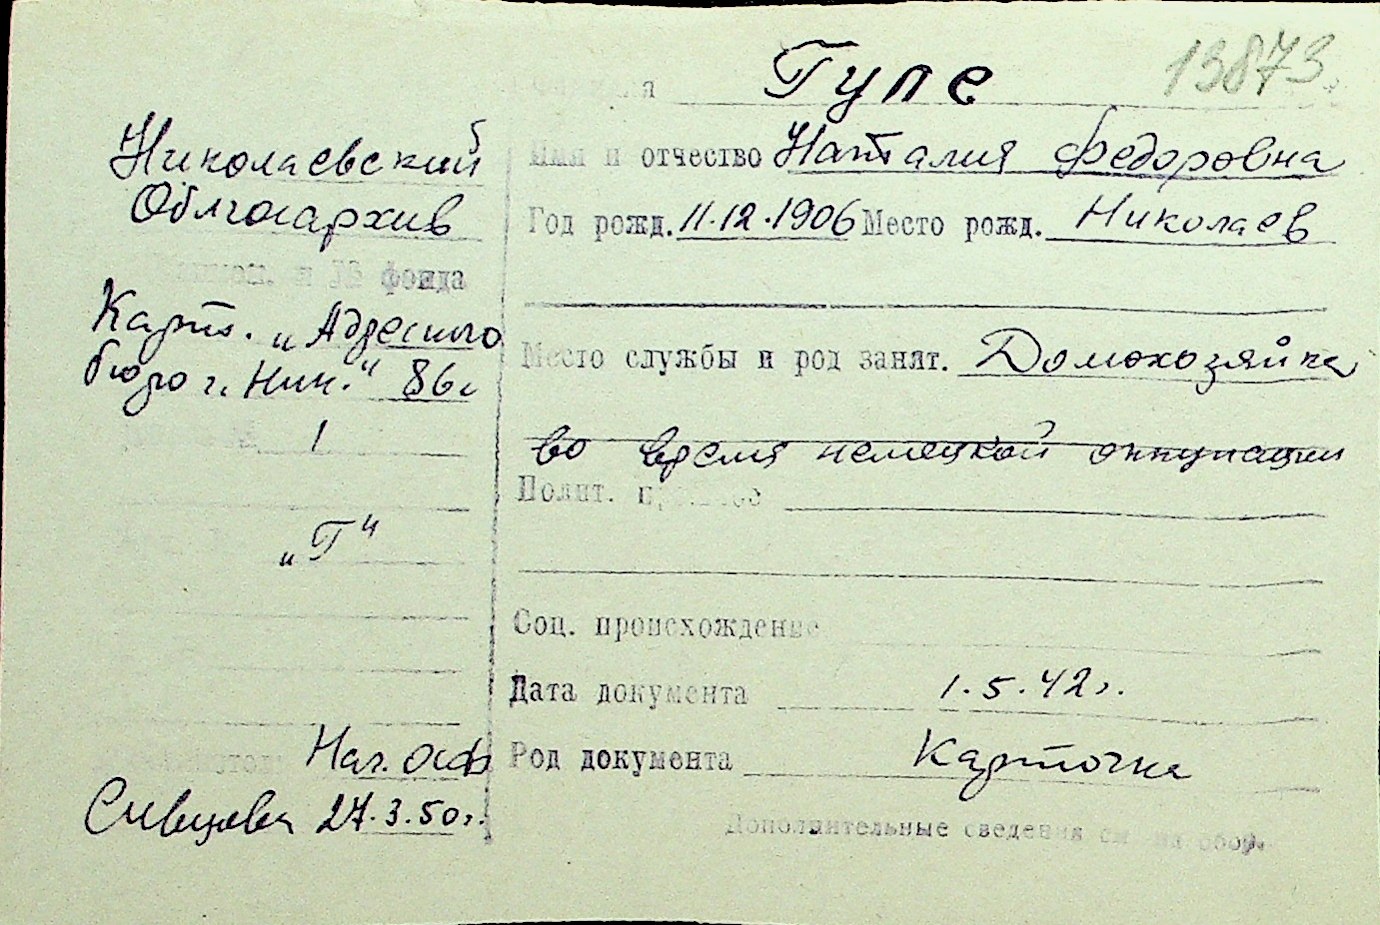 13873
Гупе
Николаевский
Облгосархив
фонда
Карт. „Адресного
бюро г. Ник." 86г
1
„Г"
Нач. осф
27.3.50г.
Имя и отчество Наталия Федоровна
Год рожд. 11.12.1906 Место рожд. Николаев
Место службы и род занят. Домохозяйка
во время немецкой оккупации
Полит.
Соц. происхождение
Дата документа 1.5.42г.
Род документа Карточка
Дополнительные сведения см на обор.